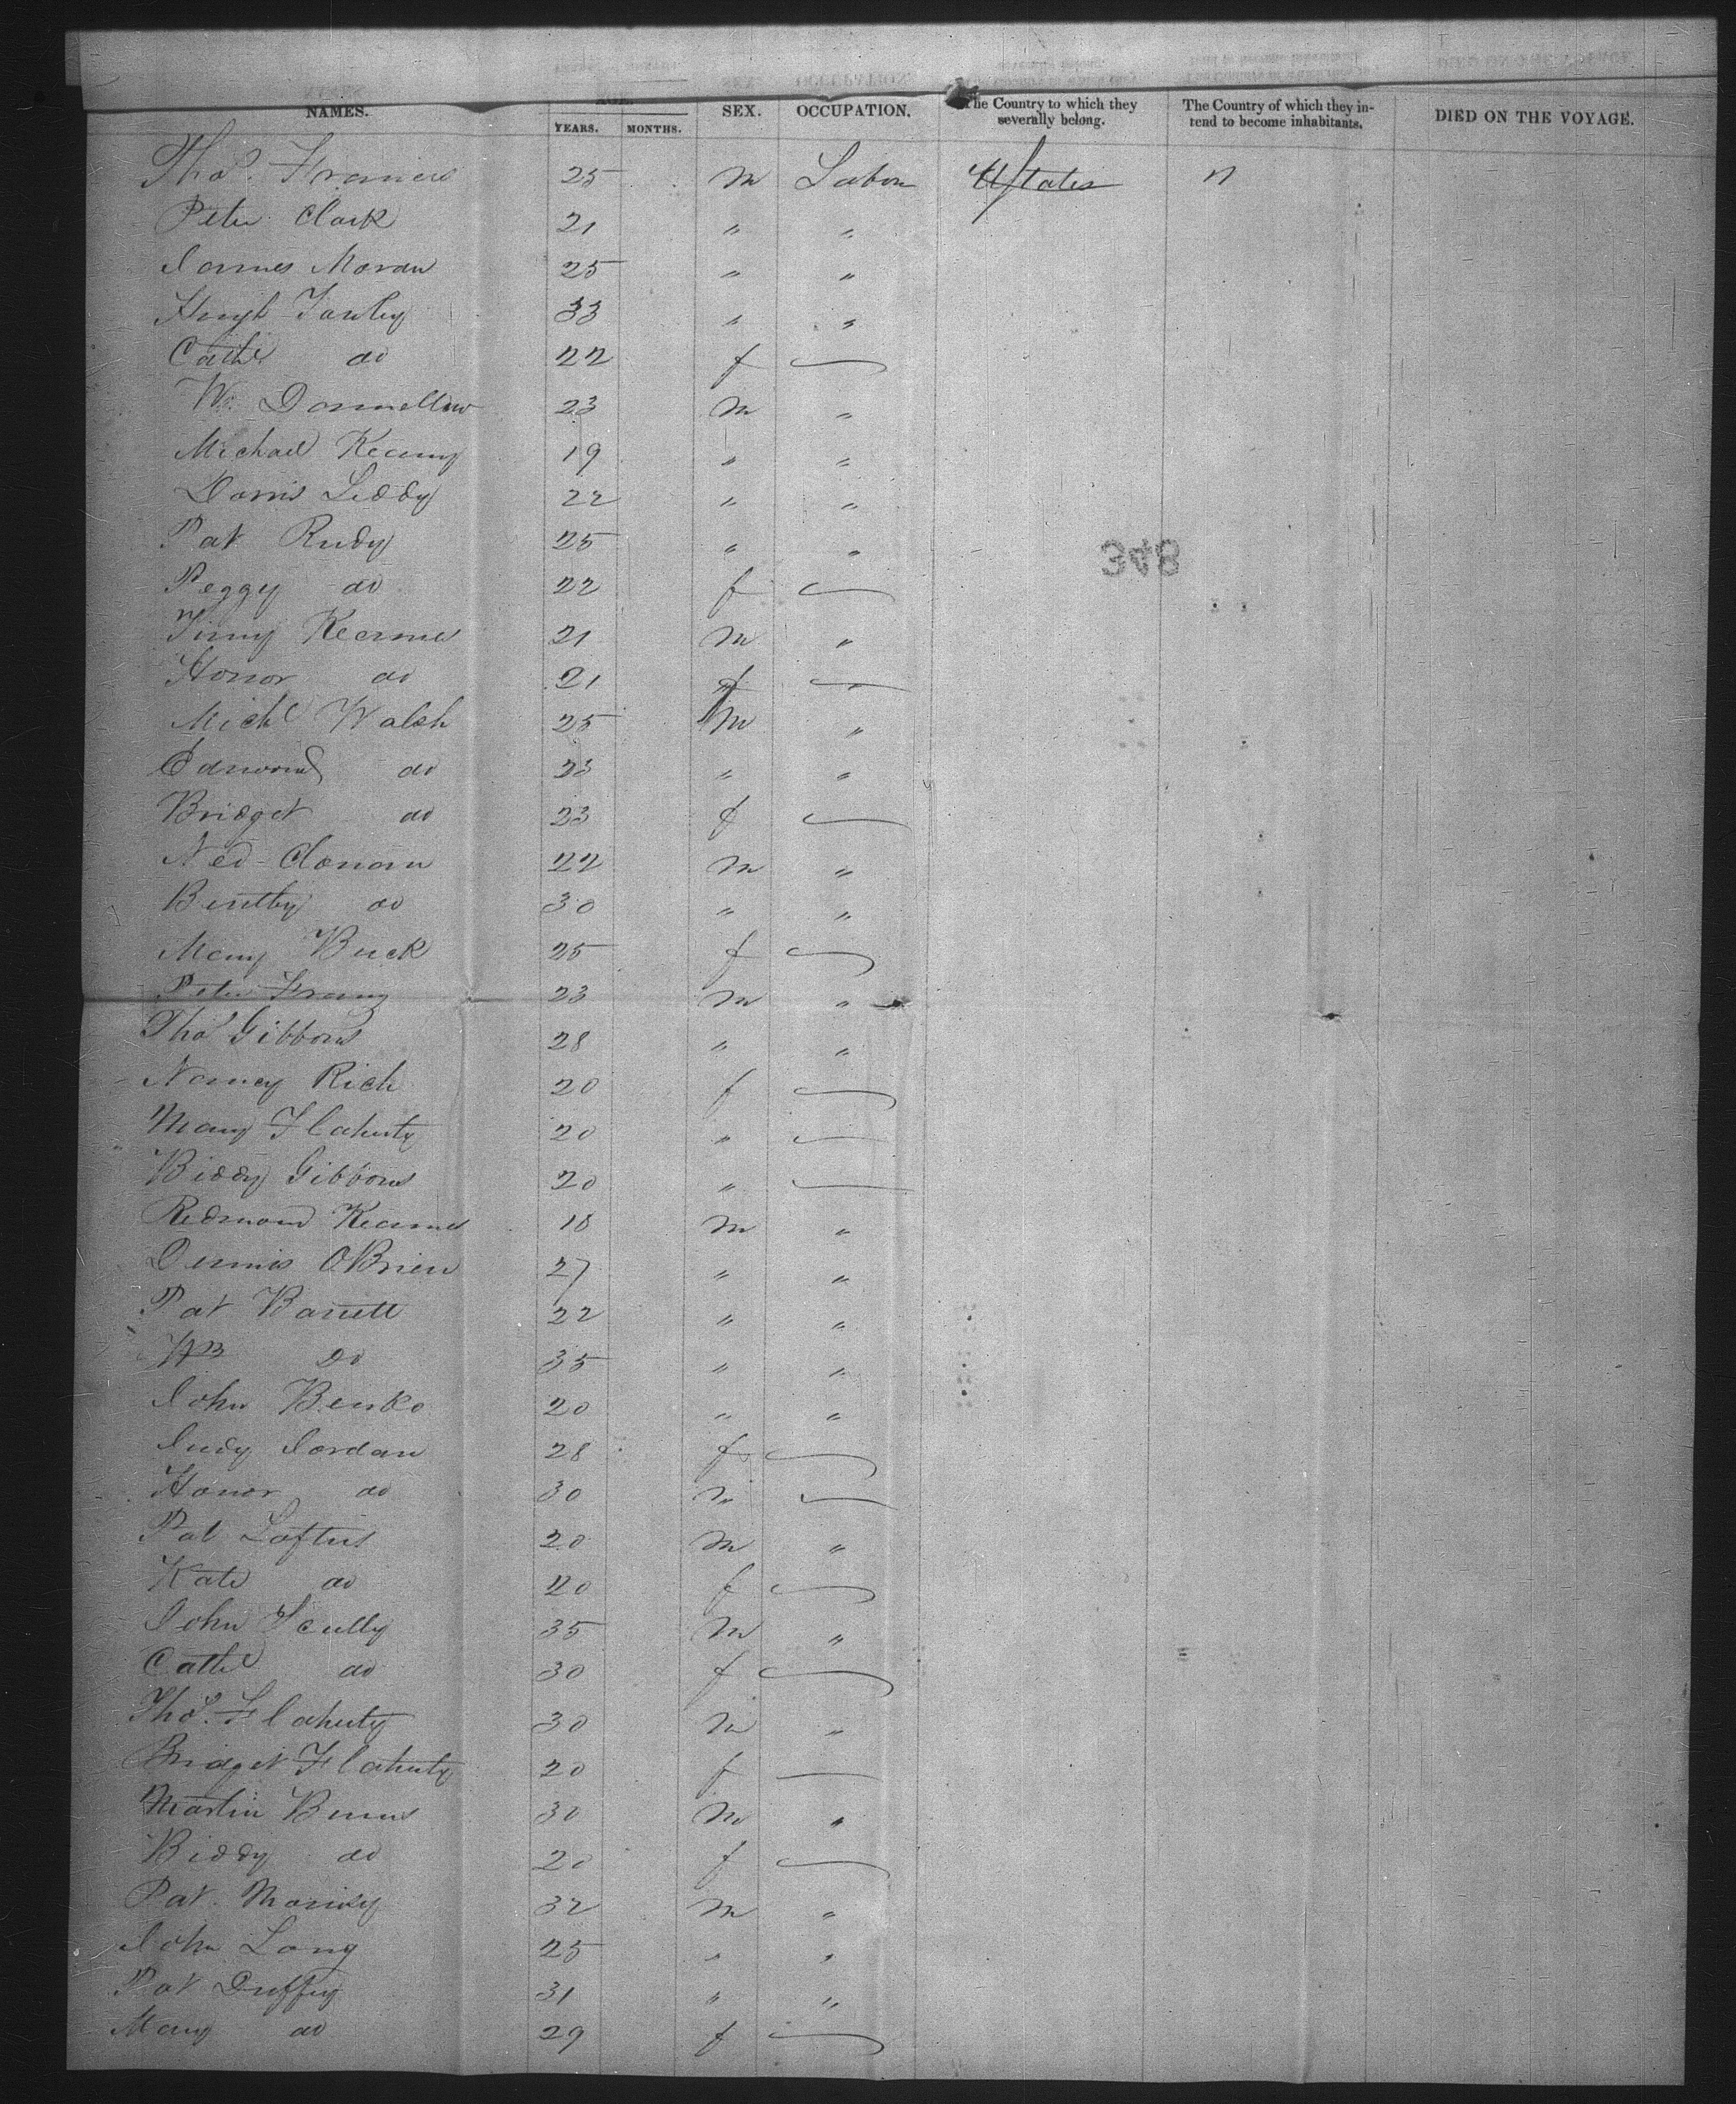 NAMES. AGE. YEARS. MONTHS. SEX. OCCUPATION. The Country to which they severally belong. The Country of which they intend to become inhabitants. DIED ON THE VOYAGE.
Thos. Francis 25 m Labor UStates "
Peter Clark 21 " "
James Moran 25 " "
Hugh 33 " "
Cathe do 22 f —
Wm. Donnellan 23 m "
Michael 19 " "
Leddy 22 " "
Pat Rudy 25 " "
Peggy do 22 f —
Kearnes 21 m "
Honor do 21 f —
Michl Walsh 25 m "
Edmond do 23 " "
Bridget do 23 f —
Ned 22 m "
do 30 " "
Mary Buck 25 f —
Peter 23 m "
Thos Gibbons 28 " "
Nancy Rich 20 f —
Mary Flahuty 20 " —
Biddy Gibbons 20 " —
Redmond Kearnes 18 m "
Dennis OBrien 27 " "
Pat Barrett 22 " "
Wm Do 35 " "
John 20 " "
Judy Jordan 28 f —
Honor do 30 " —
Pat Loftus 20 m "
Kate do 20 f —
John Scully 35 m "
Cathe do 30 f —
Thos. Flahuty 30 m "
Bridget Flahuty 20 f —
Martin Burns 30 m "
Biddy do 20 f —
Pat. 32 m "
John Long 25 " "
Pat Duffy 31 " "
Mary do 29 f —
348